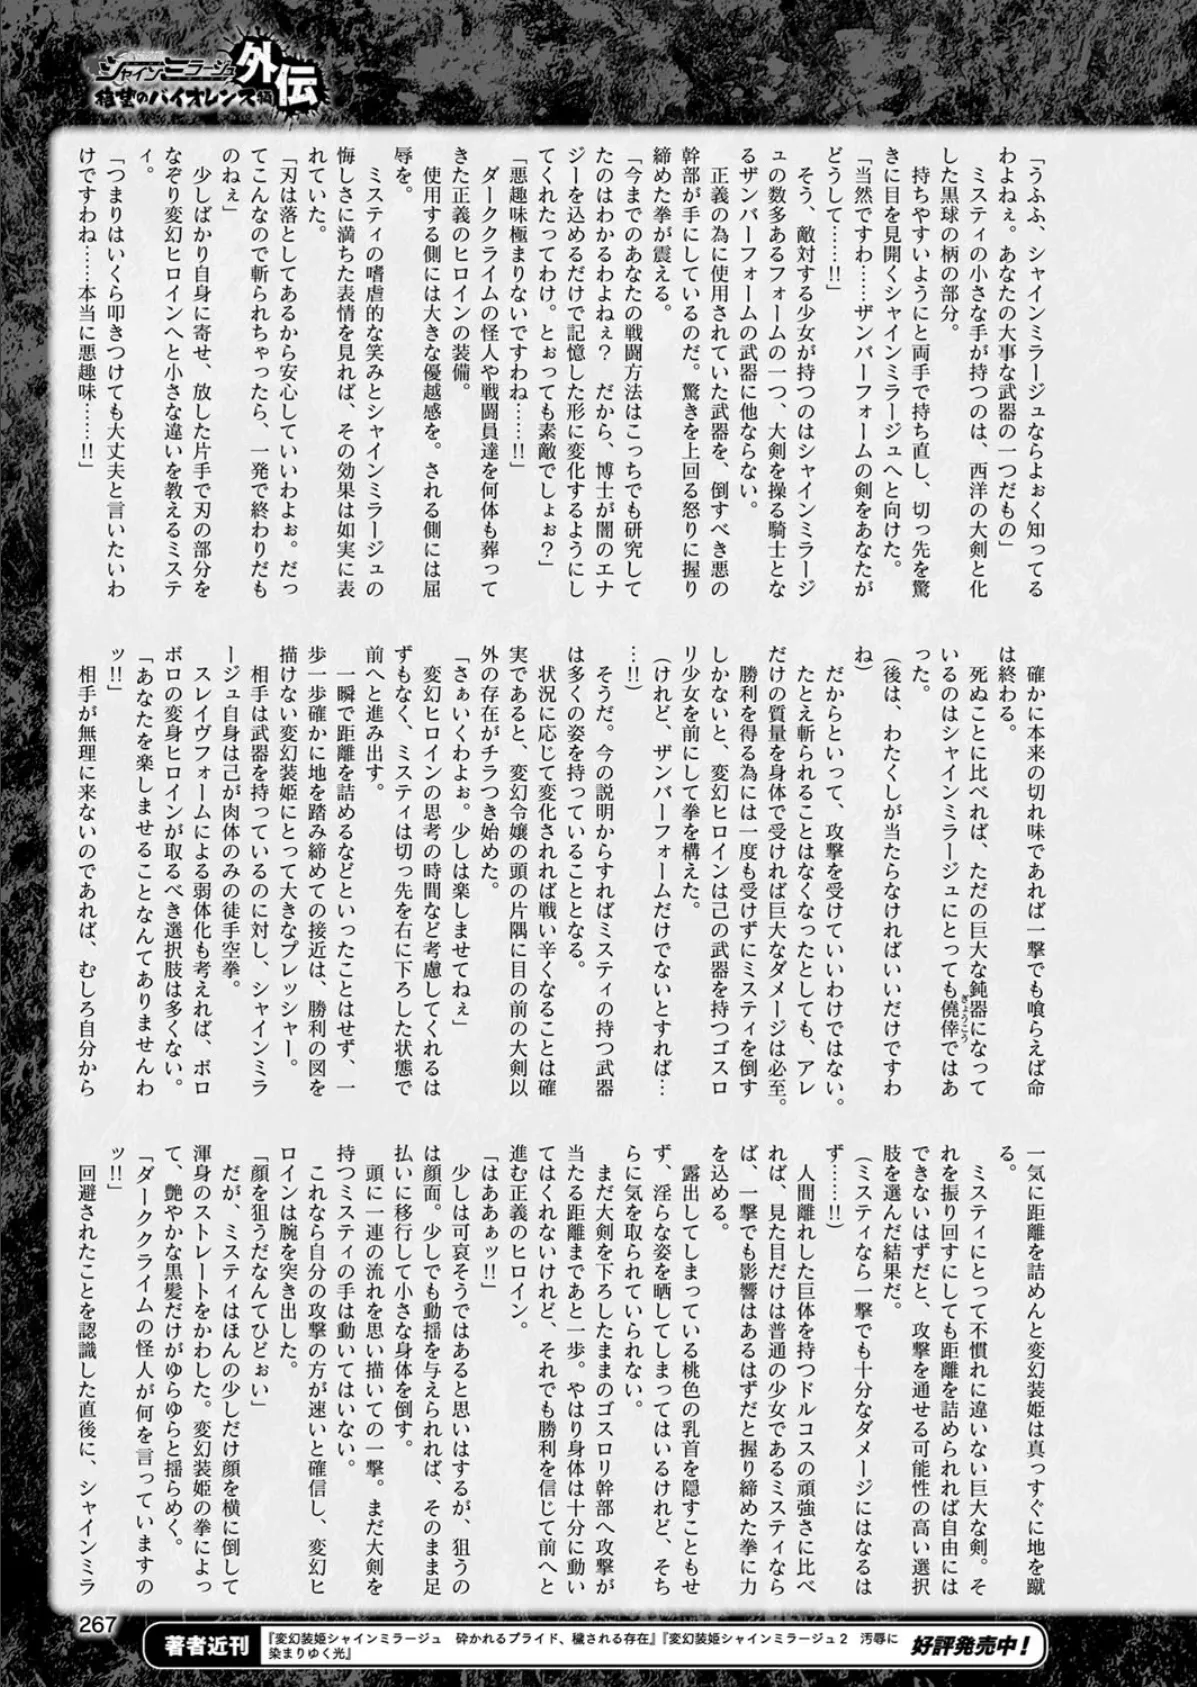 シャインミラージュ
外伝
待望のバイオレンス編
「うふふ、シャインミラージュならよぉく知ってる
わよねぇ。あなたの大事な武器の一つだもの」
ミスティの小さな手が持つのは、西洋の大剣と化
した黒球の柄の部分。
持ちやすいようにと両手で持ち直し、切っ先を驚
きに目を見開くシャインミラージュへと向けた。
「当然ですわ……ザンバーフォームの剣をあなたが
どうして……!!」
そう、敵対する少女が持つのはシャインミラージ
ュの数多あるフォームの一つ、大剣を操る騎士とな
るザンバーフォームの武器に他ならない。
正義の為に使用されていた武器を、倒すべき悪の
幹部が手にしているのだ。驚きを上回る怒りに握り
締めた拳が震える。
「今までのあなたの戦闘方法はこっちでも研究して
たのはわかるわよねぇ？　だから、博士が闇のエナ
ジーを込めるだけで記憶した形に変化するようにし
てくれたってわけ。とぉっても素敵でしょぉ？」
「悪趣味極まりないですわね……!!」
ダーククライムの怪人や戦闘員達を何体も葬って
きた正義のヒロインの装備。
使用する側には大きな優越感を。される側には屈
辱を。
ミスティの嗜虐的な笑みとシャインミラージュの
悔しさに満ちた表情を見れば、その効果は如実に表
れていた。
「刃は落としてあるから安心していいわよぉ。だっ
てこんなので斬られちゃったら、一発で終わりだも
のねぇ」
少しばかり自身に寄せ、放した片手で刃の部分を
なぞり変幻ヒロインへと小さな違いを教えるミステ
ィ。
「つまりはいくら叩きつけても大丈夫と言いたいわ
けですわね……本当に悪趣味……!!」
確かに本来の切れ味であれば一撃でも喰らえば命
は終わる。
死ぬことに比べれば、ただの巨大な鈍器になって
いるのはシャインミラージュにとっても僥倖ではあ
ぎょうこう
った。
（後は、わたくしが当たらなければいいだけですわ
ね）
だからといって、攻撃を受けていいわけではない。
たとえ斬られることはなくなったとしても、アレ
だけの質量を身体で受ければ巨大なダメージは必至。
勝利を得る為には一度も受けずにミスティを倒す
しかないと、変幻ヒロインは己の武器を持つゴスロ
リ少女を前にして拳を構えた。
（けれど、ザンバーフォームだけでないとすれば…
…!!）
そうだ。今の説明からすればミスティの持つ武器
は多くの姿を持っていることとなる。
状況に応じて変化されれば戦い辛くなることは確
実であると、変幻令嬢の頭の片隅に目の前の大剣以
外の存在がチラつき始めた。
「さぁいくわよぉ。少しは楽しませてねぇ」
変幻ヒロインの思考の時間など考慮してくれるは
ずもなく、ミスティは切っ先を右に下ろした状態で
前へと進み出す。
一瞬で距離を詰めるなどといったことはせず、一
歩一歩確かに地を踏み締めての接近は、勝利の図を
描けない変幻装姫にとって大きなプレッシャー。
相手は武器を持っているのに対し、シャインミラ
ージュ自身は己が肉体のみの徒手空拳。
スレイヴフォームによる弱体化も考えれば、ボロ
ボロの変身ヒロインが取るべき選択肢は多くない。
「あなたを楽しませることなんてありませんわ
ッ!!」
相手が無理に来ないのであれば、むしろ自分から
一気に距離を詰めんと変幻装姫は真っすぐに地を蹴
る。
ミスティにとって不慣れに違いない巨大な剣。そ
れを振り回すにしても距離を詰められれば自由には
できないはずだと、攻撃を通せる可能性の高い選択
肢を選んだ結果だ。
（ミスティなら一撃でも十分なダメージにはなるは
ず……!!）
人間離れした巨体を持つドルコスの頑強さに比べ
れば、見た目だけは普通の少女であるミスティなら
ば、一撃でも影響はあるはずだと握り締めた拳に力
を込める。
露出してしまっている桃色の乳首を隠すこともせ
ず、淫らな姿を晒してしまってはいるけれど、そち
らに気を取られていられない。
まだ大剣を下ろしたままのゴスロリ幹部へ攻撃が
当たる距離まであと一歩。やはり身体は十分に動い
てはくれないけれど、それでも勝利を信じて前へと
進む正義のヒロイン。
「はああぁッ!!」
少しは可哀そうではあると思いはするが、狙うの
は顔面。少しでも動揺を与えられれば、そのまま足
払いに移行して小さな身体を倒す。
頭に一連の流れを思い描いての一撃。まだ大剣を
持つミスティの手は動いてはいない。
これなら自分の攻撃の方が速いと確信し、変幻ヒ
ロインは腕を突き出した。
「顔を狙うだなんてひどぉい」
だが、ミスティはほんの少しだけ顔を横に倒して
渾身のストレートをかわした。変幻装姫の拳によっ
て、艶やかな黒髪だけがゆらゆらと揺らめく。
「ダーククライムの怪人が何を言っていますの
ッ!!」
回避されたことを認識した直後に、シャインミラ
267
著者近刊
『変幻装姫シャインミラージュ　砕かれるプライド、穢される存在』『変幻装姫シャインミラージュ２　汚辱に
染まりゆく光』
好評発売中！